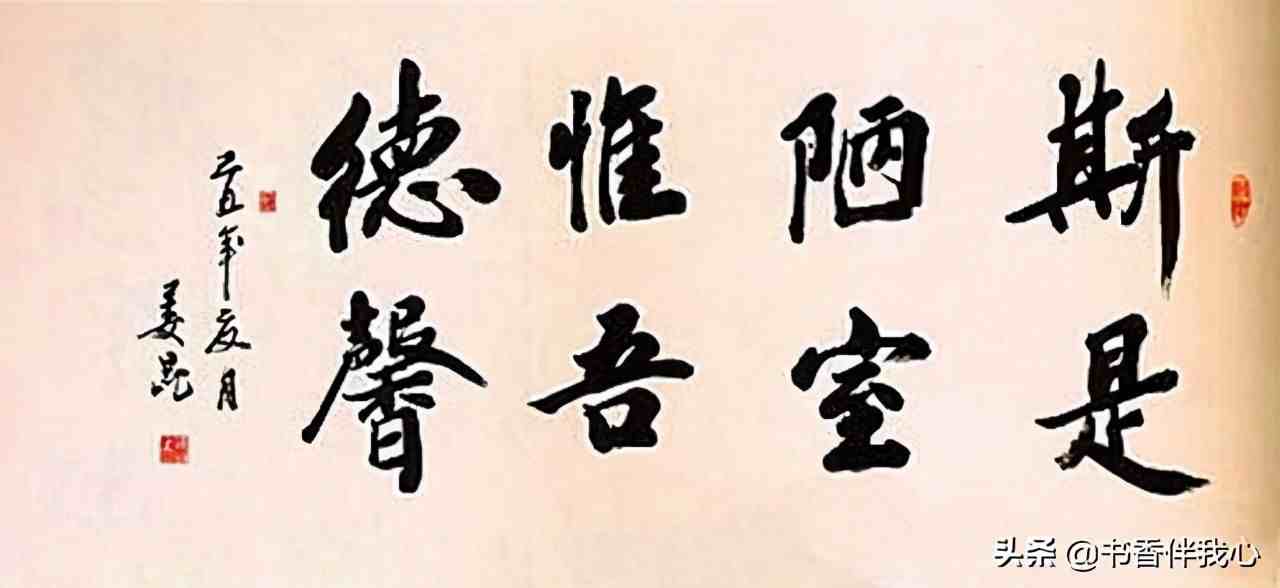 斯是
陋室
惟吾
德馨
己丑年夏月
姜昆
头条 @书香伴我心